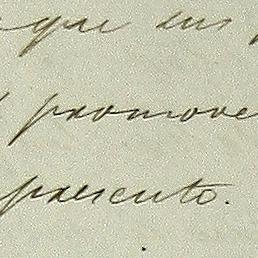 que sus
promove
presento.